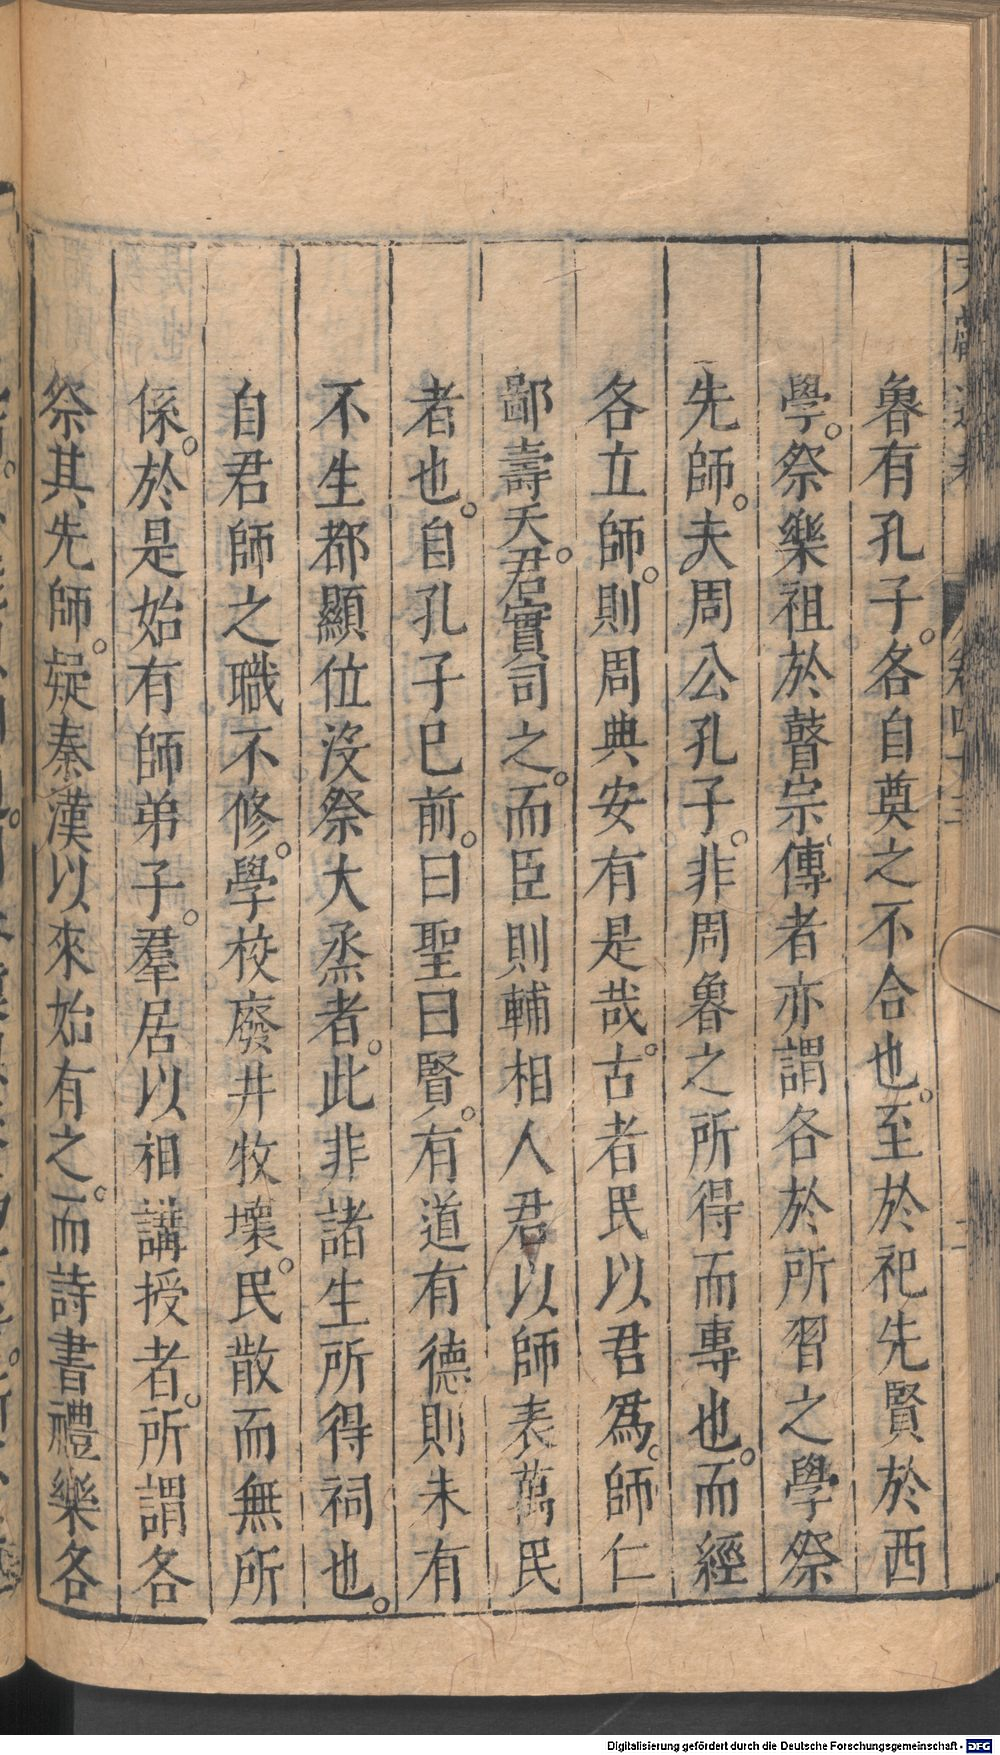 魯有孔子。各自奠之不合也。至於祀先賢於西
學。祭樂祖於瞽宗。傳者亦謂各於所習之學祭
先師。夫周公孔子。非周魯之所得而專也。而經
各立師。則周典安有是哉。古者民以君爲。師仁
鄙壽夭。君實司之。而臣則輔相人君以師表萬民
者也。自孔子已前。曰聖曰賢。有道有德則未有
不生都顯位沒祭大烝者。此非諸生所得祠也。
自君師之職不修。學校廢井牧壞。民散而無所
係。於是始有師弟子。羣居以相講授者。所謂各
祭其先師。疑秦漢以來始有之。而詩書禮樂各
Digitalisierung gefördert durch die Deutsche Forschungsgemeinschaft - DFG